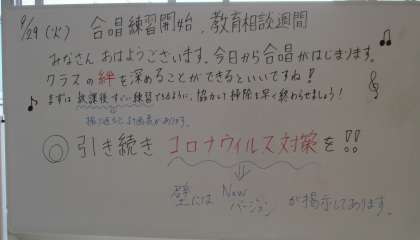 9/29(火) 合唱練習開始、教育相談週間
みなさん おはようございます。今日から合唱がはじまります。
クラスの絆を深めることができるといいですね!
まずは放課後すぐに練習できるように、協力して掃除を早く終わらせましょう!
◎ 引き続き コロナウイルス対策を!!
壁には Newバージョン が掲示してあります。